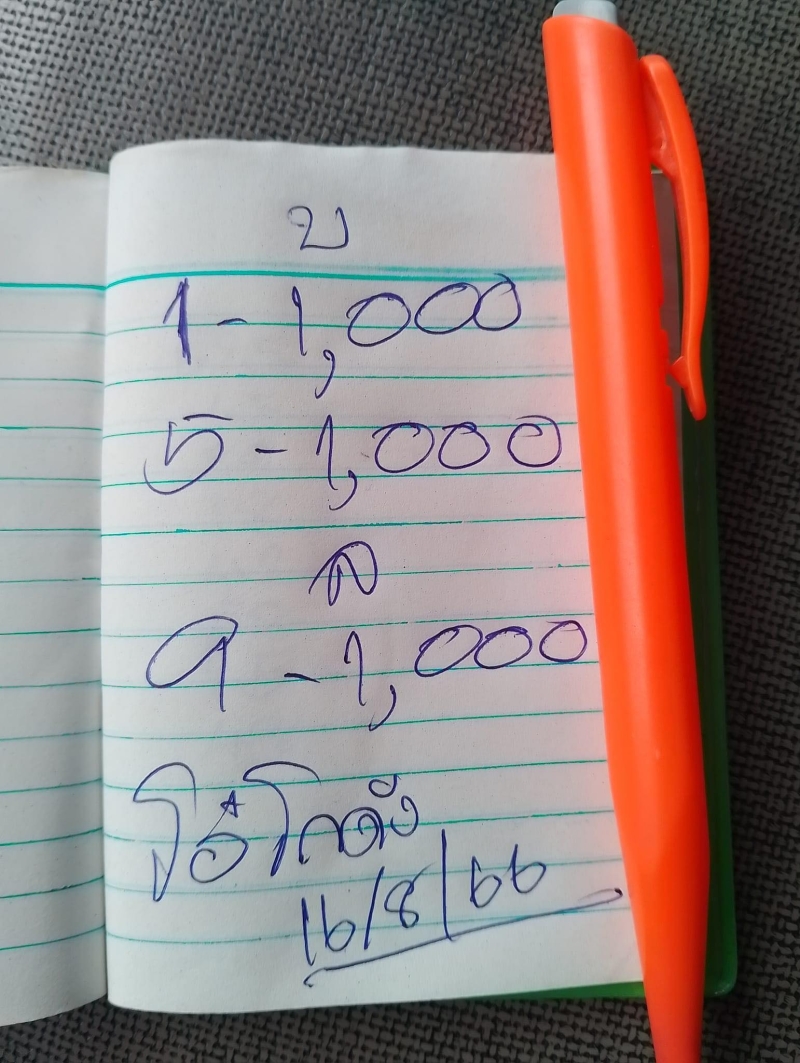 บ
1-1,000
5-1,000
ล
9-1,000
โอ๋โกดัง
16/8/66